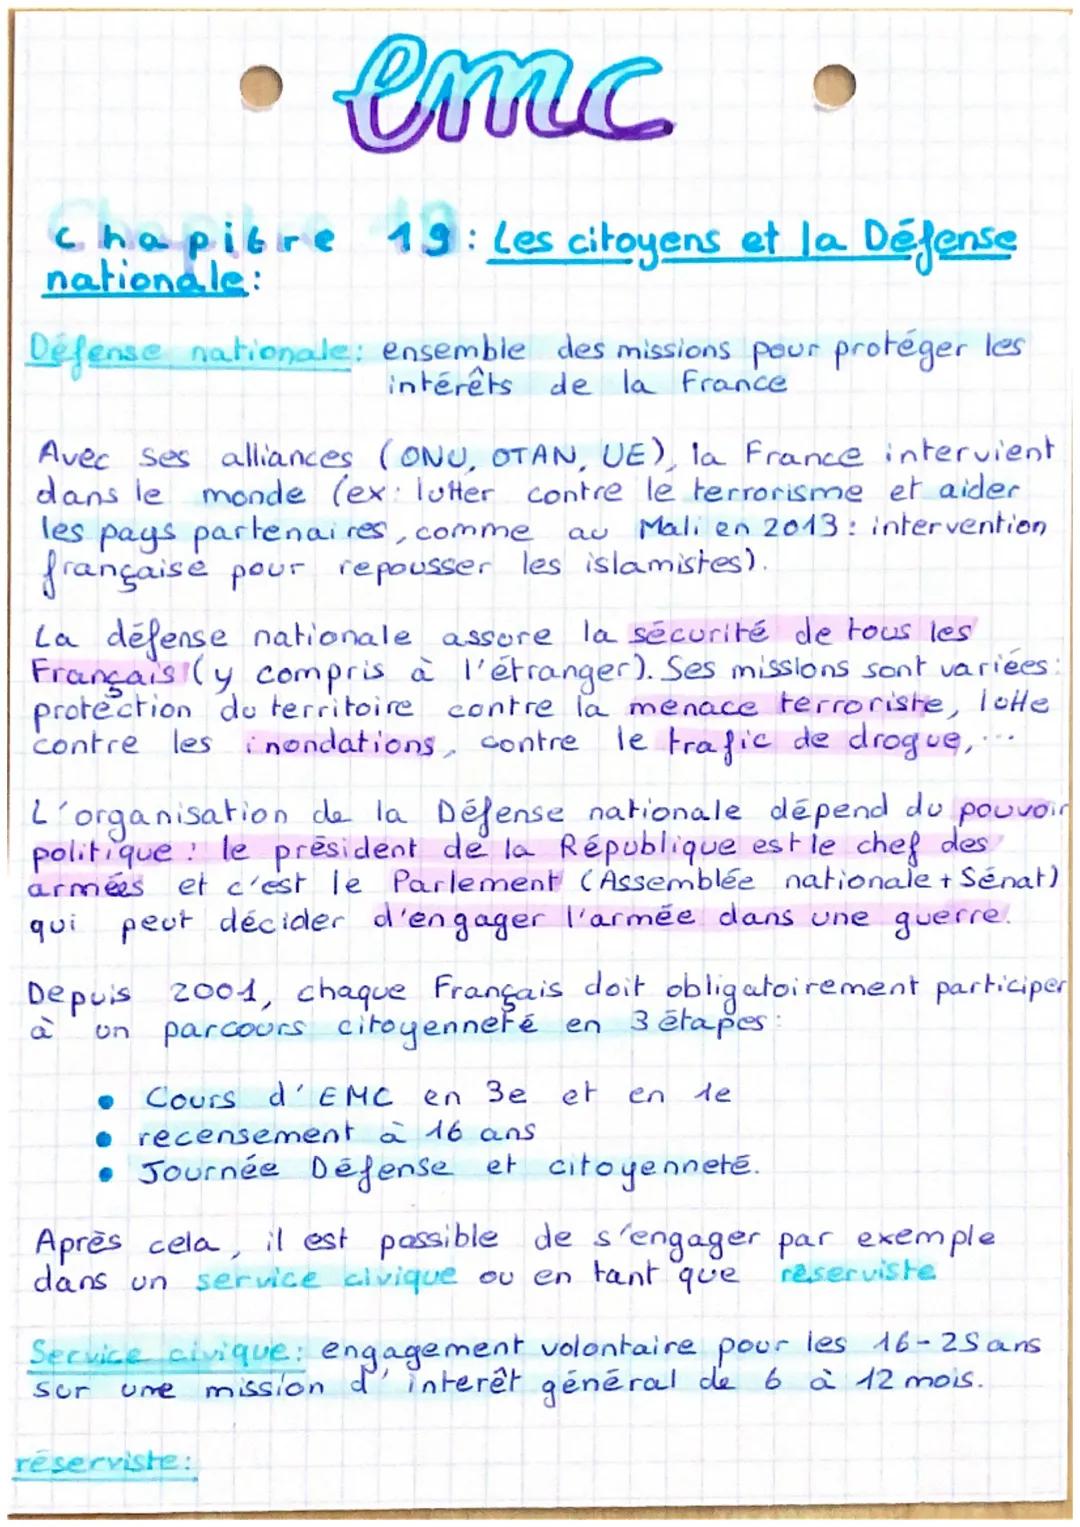 emc
Chapitre 19 : Les citoyens et la Défense
nationale :
Défense nationale : ensemble des missions pour protéger les
intérêts de la France
Avec ses alliances (ONU, OTAN, UE), la France intervient
dans le monde (ex: lutter contre le terrorisme et aider
les pays partenaires, comme au Mali en 2013 : intervention
française pour repousser les islamistes).
La défense nationale assure la sécurité de tous les
Français (y compris à l'étranger). Ses missions sont variées :
protection du territoire contre la menace terroriste, lutte
contre les inondations, contre le trafic de drogue, ...
L'organisation de la Défense nationale dépend du pouvoir
politique : le président de la République est le chef des
armées et c'est le Parlement (Assemblée nationale + Sénat)
qui peut décider d'engager l'armée dans une guerre.
Depuis 2001, chaque Français doit obligatoirement participer
à un parcours citoyenneté en 3 étapes :
• Cours d'EMC en 3e et en 1e
• recensement à 16 ans
• Journée Défense et citoyenneté.
Après cela, il est possible de s'engager par exemple
dans un service civique ou en tant que réserviste
Service civique : engagement volontaire pour les 16-25 ans
sur une mission d'interêt général de 6 à 12 mois.
réserviste :